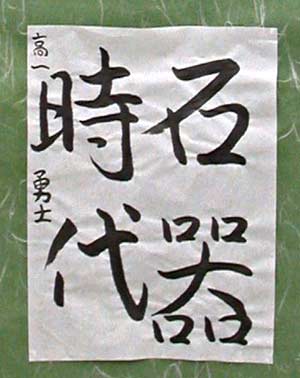 石器
時代
高一 勇士